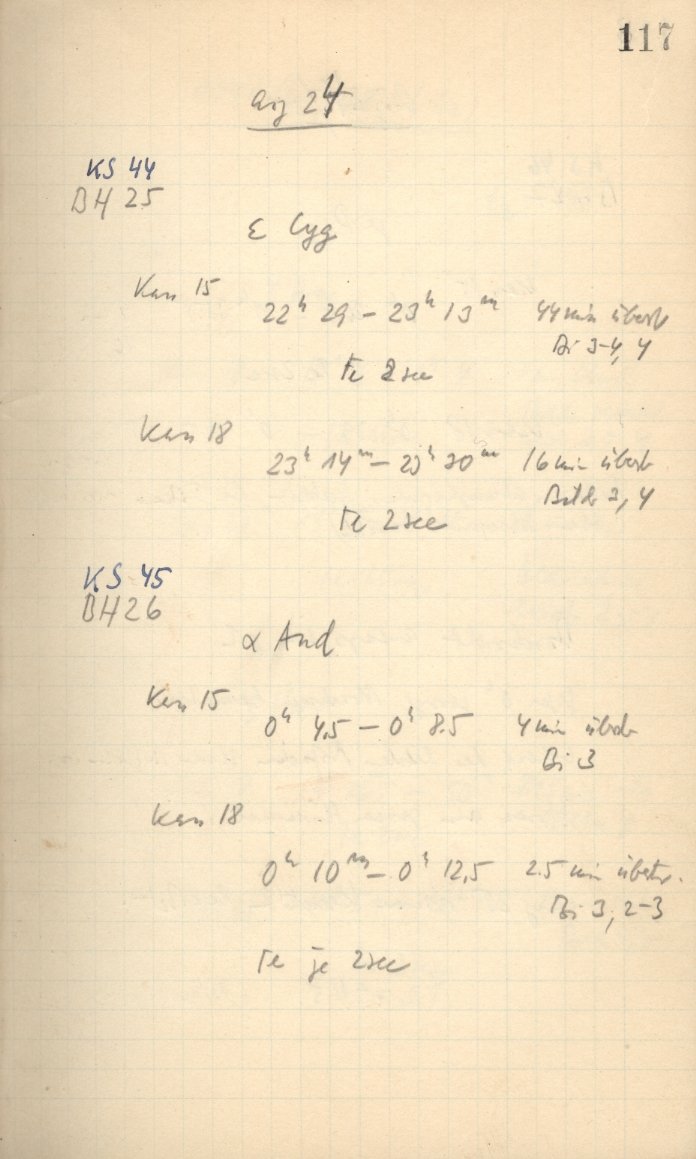 117
Aug 24
KS 44
BH 25
ε Cyg
Kam 15
22h 29 – 23h 13m 44 min übertr
Bi 3-4, 4
Te 2 sec
Kam 18
23h 14m – 23h 30m 16 min übertr
Bild 3, 4
Te 2 sec
KS 45
BH 26
α And
Kam 15
0h 4,5 – 0h 8.5 4 min übertr
Bi 3
Kam 18
0h 10m – 0h 12,5 2.5 min übertr.
Bi 3, 2-3
Te je 2 sec